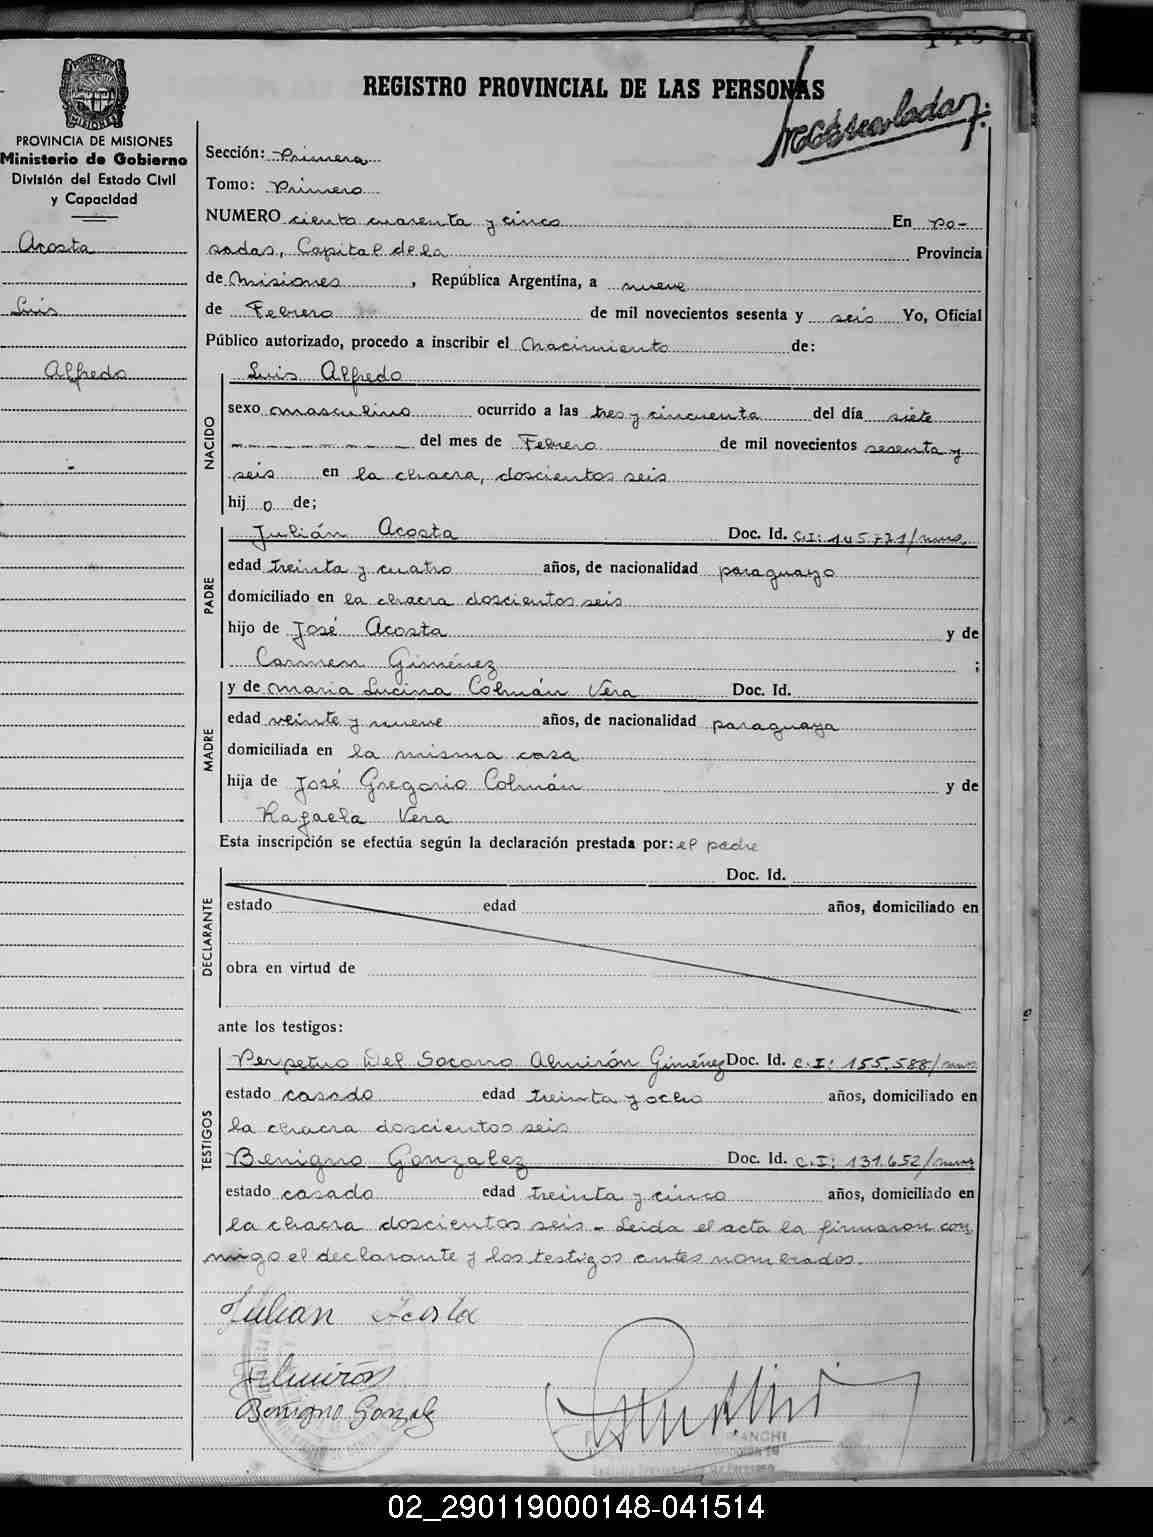 REGISTRO PROVINCIAL DE LAS PERSONAS
PROVINCIA DE MISIONES
Ministerio de Gobierno
División del Estado Civil
y Capacidad
Acosta
Luis
Alfredo
Sección: Primera
Tomo: Primero
NUMERO ciento cuarenta y cinco En Po-
sadas, Capital de la Provincia
de Misiones, República Argentina, a nueve
de Febrero de mil novecientos sesenta y seis Yo, Oficial
Público autorizado, procedo a inscribir el Nacimiento de:
NACIDO
Luis Alfredo
sexo masculino ocurrido a las tres y cincuenta del día siete
del mes de Febrero de mil novecientos sesenta y
seis en la chacra, doscientos seis
hij o de;
PADRE
Julián Acosta Doc. Id. C.I: 145.721/mnes.
edad treinta y cuatro años, de nacionalidad paraguayo
domiciliado en la chacra doscientos seis
hijo de José Acosta y de
Carmen Giménez ;
MADRE
y de Maria Lucina Colmán Vera Doc. Id.
edad veinte y nueve años, de nacionalidad paraguaya
domiciliada en la misma casa
hija de José Gregorio Colmán y de
Rafaela Vera
Esta inscripción se efectúa según la declaración prestada por: el padre
DECLARANTE
Doc. Id.
estado edad años, domiciliado en
obra en virtud de
ante los testigos:
TESTIGOS
Perpetuo Del Socorro Almirón Giménez Doc. Id. C.I: 155.588/mnes
estado casado edad treinta y ocho años, domiciliado en
la chacra doscientos seis
Benigno Gonzalez Doc. Id. C.I: 131.652/mnes
estado casado edad treinta y cinco años, domiciliado en
la chacra doscientos seis - Leida el acta la firmaron con
migo el declarante y los testigos antes nombrados.
Julian Acosta
Almirón
Benigno Gonzalez
02_290119000148-041514